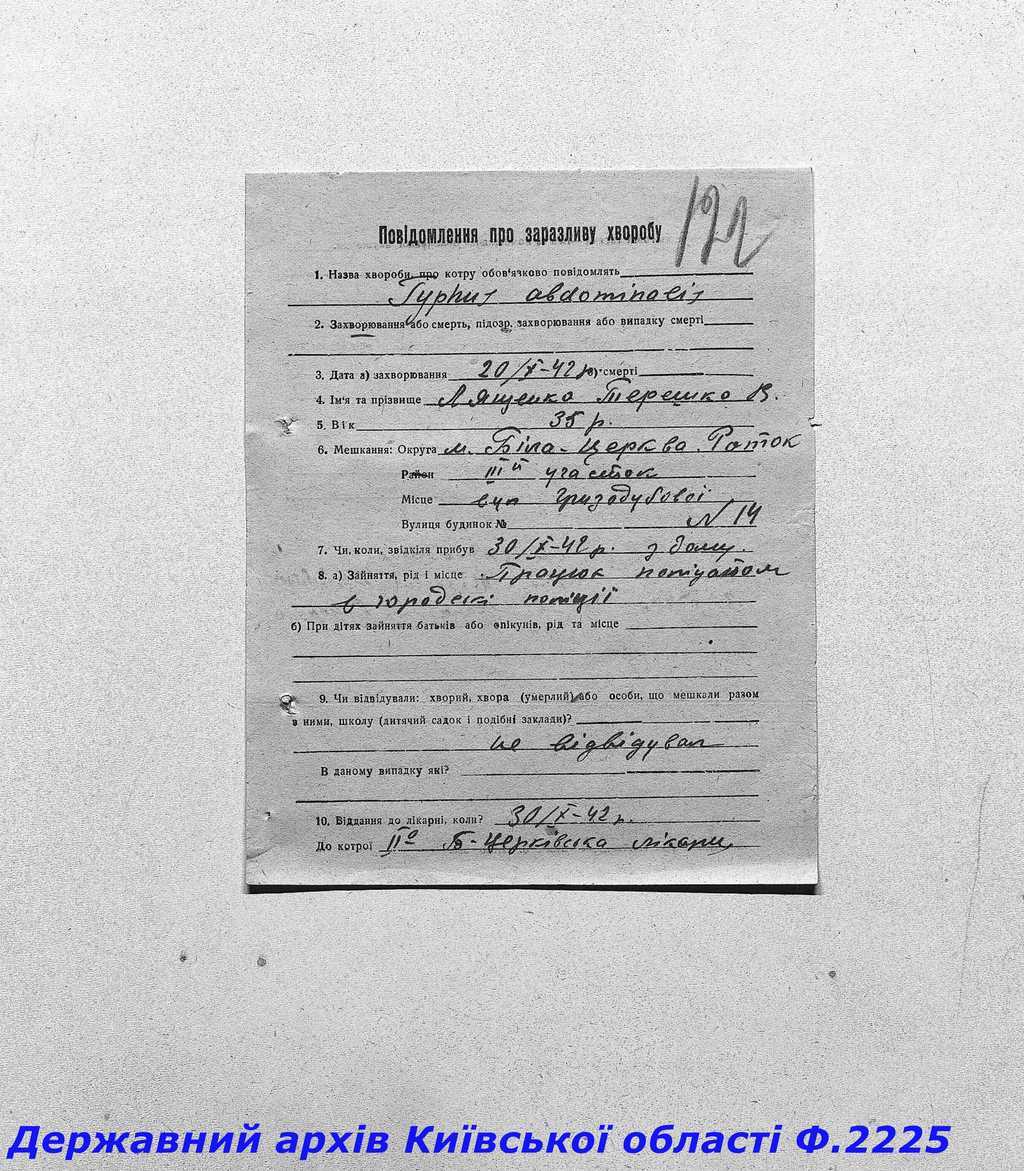 122
Повідомлення про заразливу хворобу
1. Назва хвороби, про котру обов'язково повідомлять
Typhus abdominalis
2. Захворювання або смерть, підозр. захворювання або випадку смерті
3. Дата а) захворювання 20/X-42 р. б) смерті
4. Ім'я та прізвище Лященко Терешко В.
5. Вік 35 р.
6. Мешкання: Округа м. Біла-Церква. Роток
Район III й участок
Місце вул Гризодубової
Вулиця будинок № N 14
7. Чи, коли, звідкіля прибув 30/X-42 р. з дому.
8. а) Зайняття, рід і місце Працює поліцаєм
в городскі поліції
б) При дітях зайняття батьків або опікунів, рід та місце
9. Чи відвідували: хворий, хвора (умерлий) або особи, що мешкали разом
з ними, школу (дитячий садок і подібні заклади)?
не відвідувал
В даному випадку які?
10. Віддання до лікарні, коли? 30/X-42 р.
До котрої II а Б-Церківська лікарн.
Державний архів Київської області Ф.2225